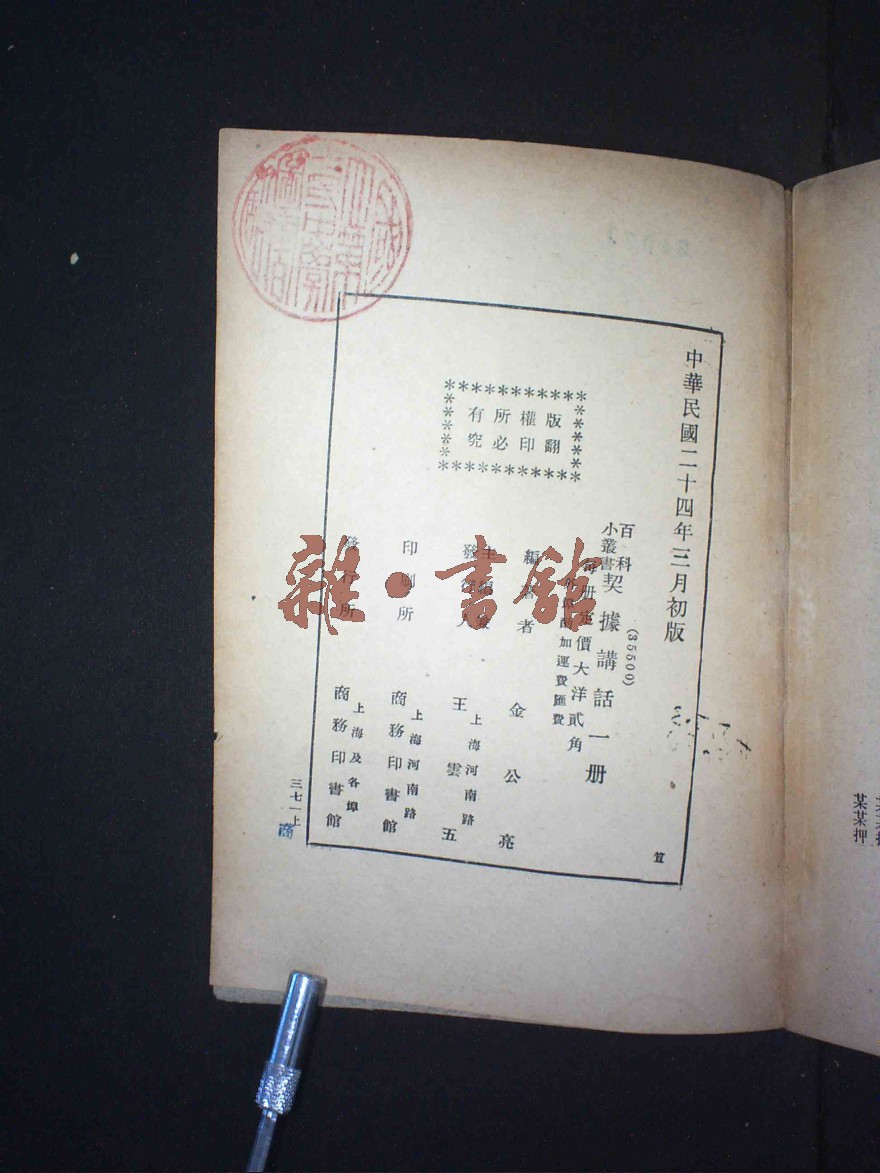 中華民國二十四年三月初版
版權所有
翻印必究
百科
小叢書
契據講話一册
(35500)
每册定價大洋貳角
外埠酌加運費匯費
編 者
金公亮
主
發 人
王雲五
上海河南路
印刷所
商務印書館
上海河南路
發行所
商務印書館
上海及各埠
三七一上
商
雜·書館
某某押